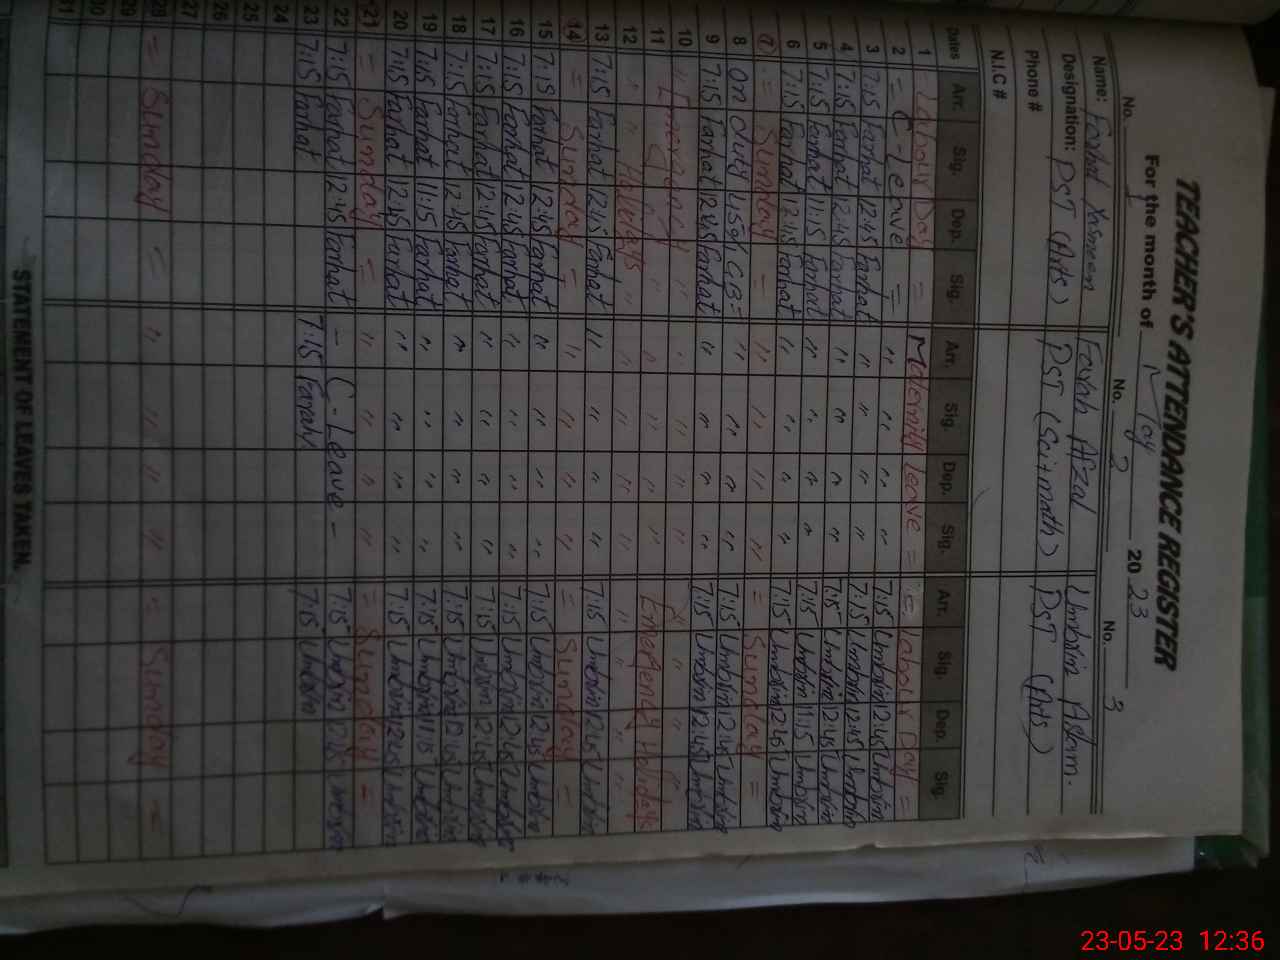 TEACHER'S ATTENDANCE REGISTER
For the month of May 2023
No. 1 No. 2 No. 3
Name: Farhat Yasmeen Farah Afzal Umbrin Aslam.
Designation: PST (Arts) PST (Sci+math) PST (Arts)
Phone #
N.I.C #
Dates Arr. Sig. Dep. Sig. Arr. Sig. Dep. Sig. Arr. Sig. Dep. Sig.
1 Labour Day = Maternity Leave = = Labour Day =
2 = C-Leave = " " " " 7:15 Umbrin 12:45 Umbrin
3 7:15 Farhat 12:45 Farhat " " " " 7:15 Umbrin 12:45 Umbrin
4 7:15 Farhat 12:45 Farhat " " " " 7:15 Umbrin 12:45 Umbrin
5 7:15 Farhat 11:15 Farhat " " " " 7:15 Umbrin 11:15 Umbrin
6 7:15 Farhat 12:45 Farhat " " " " 7:15 Umbrin 12:45 Umbrin
7 = Sunday = " " " " = Sunday =
8 On duty " " " " 7:15 Umbrin 12:45 Umbrin
9 7:15 Farhat 12:45 Farhat " " " " 7:15 Umbrin 12:45 Umbrin
10 " Emergency " " " " " " " " "
11 " " " " " " Emergency Holidays
12 " " Holidays " " " " " " " " "
13 7:15 Farhat 12:45 Farhat " " " " 7:15 Umbrin 12:45 Umbrin
14 = Sunday = " " " " = Sunday =
15 7:15 Farhat 12:45 Farhat " " " " 7:15 Umbrin 12:45 Umbrin
16 7:15 Farhat 12:45 Farhat " " " " 7:15 Umbrin 12:45 Umbrin
17 7:15 Farhat 12:45 Farhat " " " " 7:15 Umbrin 12:45 Umbrin
18 7:15 Farhat 12:45 Farhat " " " " 7:15 Umbrin 12:45 Umbrin
19 7:15 Farhat 11:15 Farhat " " " " 7:15 Umbrin 11:15 Umbrin
20 7:15 Farhat 12:45 Farhat " " " " 7:15 Umbrin 12:45 Umbrin
21 = Sunday = " " " " = Sunday =
22 7:15 Farhat 12:45 Farhat - C-Leave - 7:15 Umbrin 12:45 Umbrin
23 7:15 Farhat 7:15 Farah 7:15 Umbrin
24
25
26
27
28 = Sunday = " " " " = Sunday =
29
30
31
STATEMENT OF LEAVES TAKEN.
23-05-23 12:36